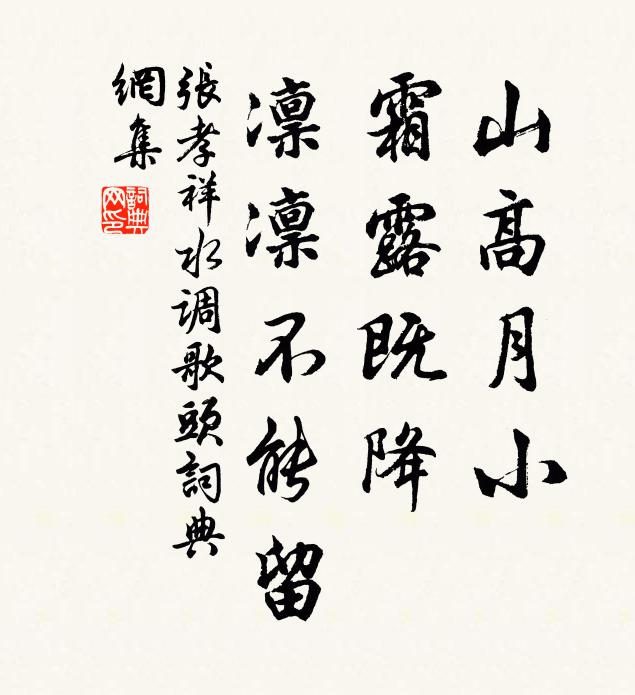 山高月小
霜露既降
凛凛不能留
張孝祥水调歌頭詞典
網集
詞典
网印